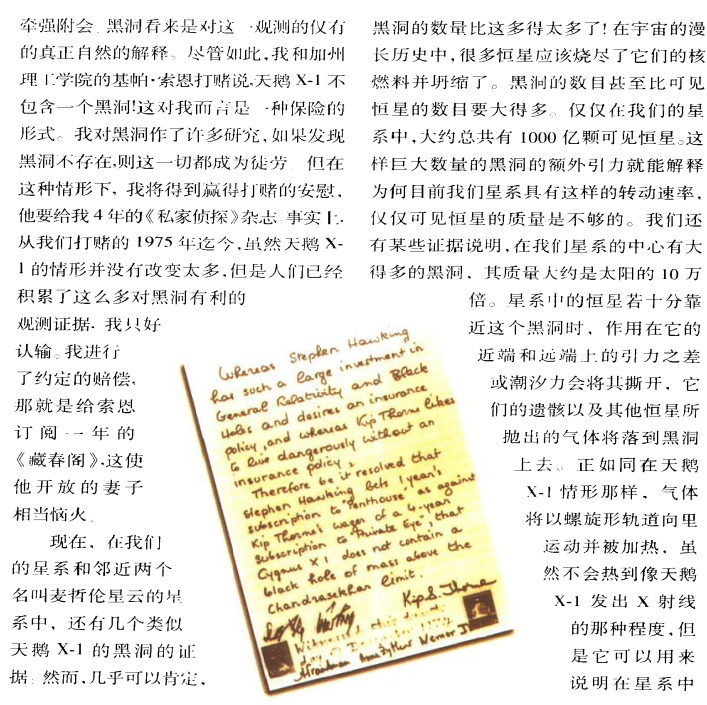 牵强附会 黑洞看来是对这一观测的仅有
的真正自然的解释。尽管如此,我和加州
理工学院的基帕·索恩打赌说,天鹅 X-1 不
包含一个黑洞!这对我而言是一种保险的
形式。我对黑洞作了许多研究,如果发现
黑洞不存在,则这一切都成为徒劳 但在
这种情形下,我将得到赢得打赌的安慰,
他要给我 4 年的《私家侦探》杂志 事实上,
从我们打赌的 1975 年迄今,虽然天鹅 X-
1 的情形并没有改变太多,但是人们已经
积累了这么多对黑洞有利的
观测证据,我只好
认输。我进行
了约定的赔偿,
那就是给索恩
订阅一年的
《藏春阁》,这使
他开放的妻子
相当恼火
现在,在我们
的星系和邻近两个
名叫麦哲伦星云的星
系中,还有几个类似
天鹅 X-1 的黑洞的证
据 然而,几乎可以肯定,
Whereas Stephen Hawking
has such a large investment in
General Relativity and Black
Holes and desires an insurance
policy, and whereas Kip Thorne likes
to live dangerously without an
insurance policy,
Therefore be it resolved that
Stephen Hawking bets 1 year's
subscription to "Penthouse" as against
Kip Thorne's wager of a 4-year
subscription to "Private Eye", that
Cygnus X 1 does not contain a
black hole of mass above the
Chandrasekhar limit.
Kip S. Thorne
Witnessed this
day of December 1974
Anna Żytkow Werner
黑洞的数量比这多得太多了! 在宇宙的漫
长历史中,很多恒星应该烧尽了它们的核
燃料并坍缩了。黑洞的数目甚至比可见
恒星的数目要大得多。仅仅在我们的星
系中,大约总共有 1000 亿颗可见恒星。这
样巨大数量的黑洞的额外引力就能解释
为何目前我们星系具有这样的转动速率,
仅仅可见恒星的质量是不够的。我们还
有某些证据说明,在我们星系的中心有大
得多的黑洞,其质量大约是太阳的 10 万
倍。星系中的恒星若十分靠
近这个黑洞时,作用在它的
近端和远端上的引力之差
或潮汐力会将其撕开,它
们的遗骸以及其他恒星所
抛出的气体将落到黑洞
上去。正如同在天鹅
X-1 情形那样,气体
将以螺旋形轨道向里
运动并被加热,虽
然不会热到像天鹅
X-1 发出 X 射线
的那种程度,但
是它可以用来
说明在星系中